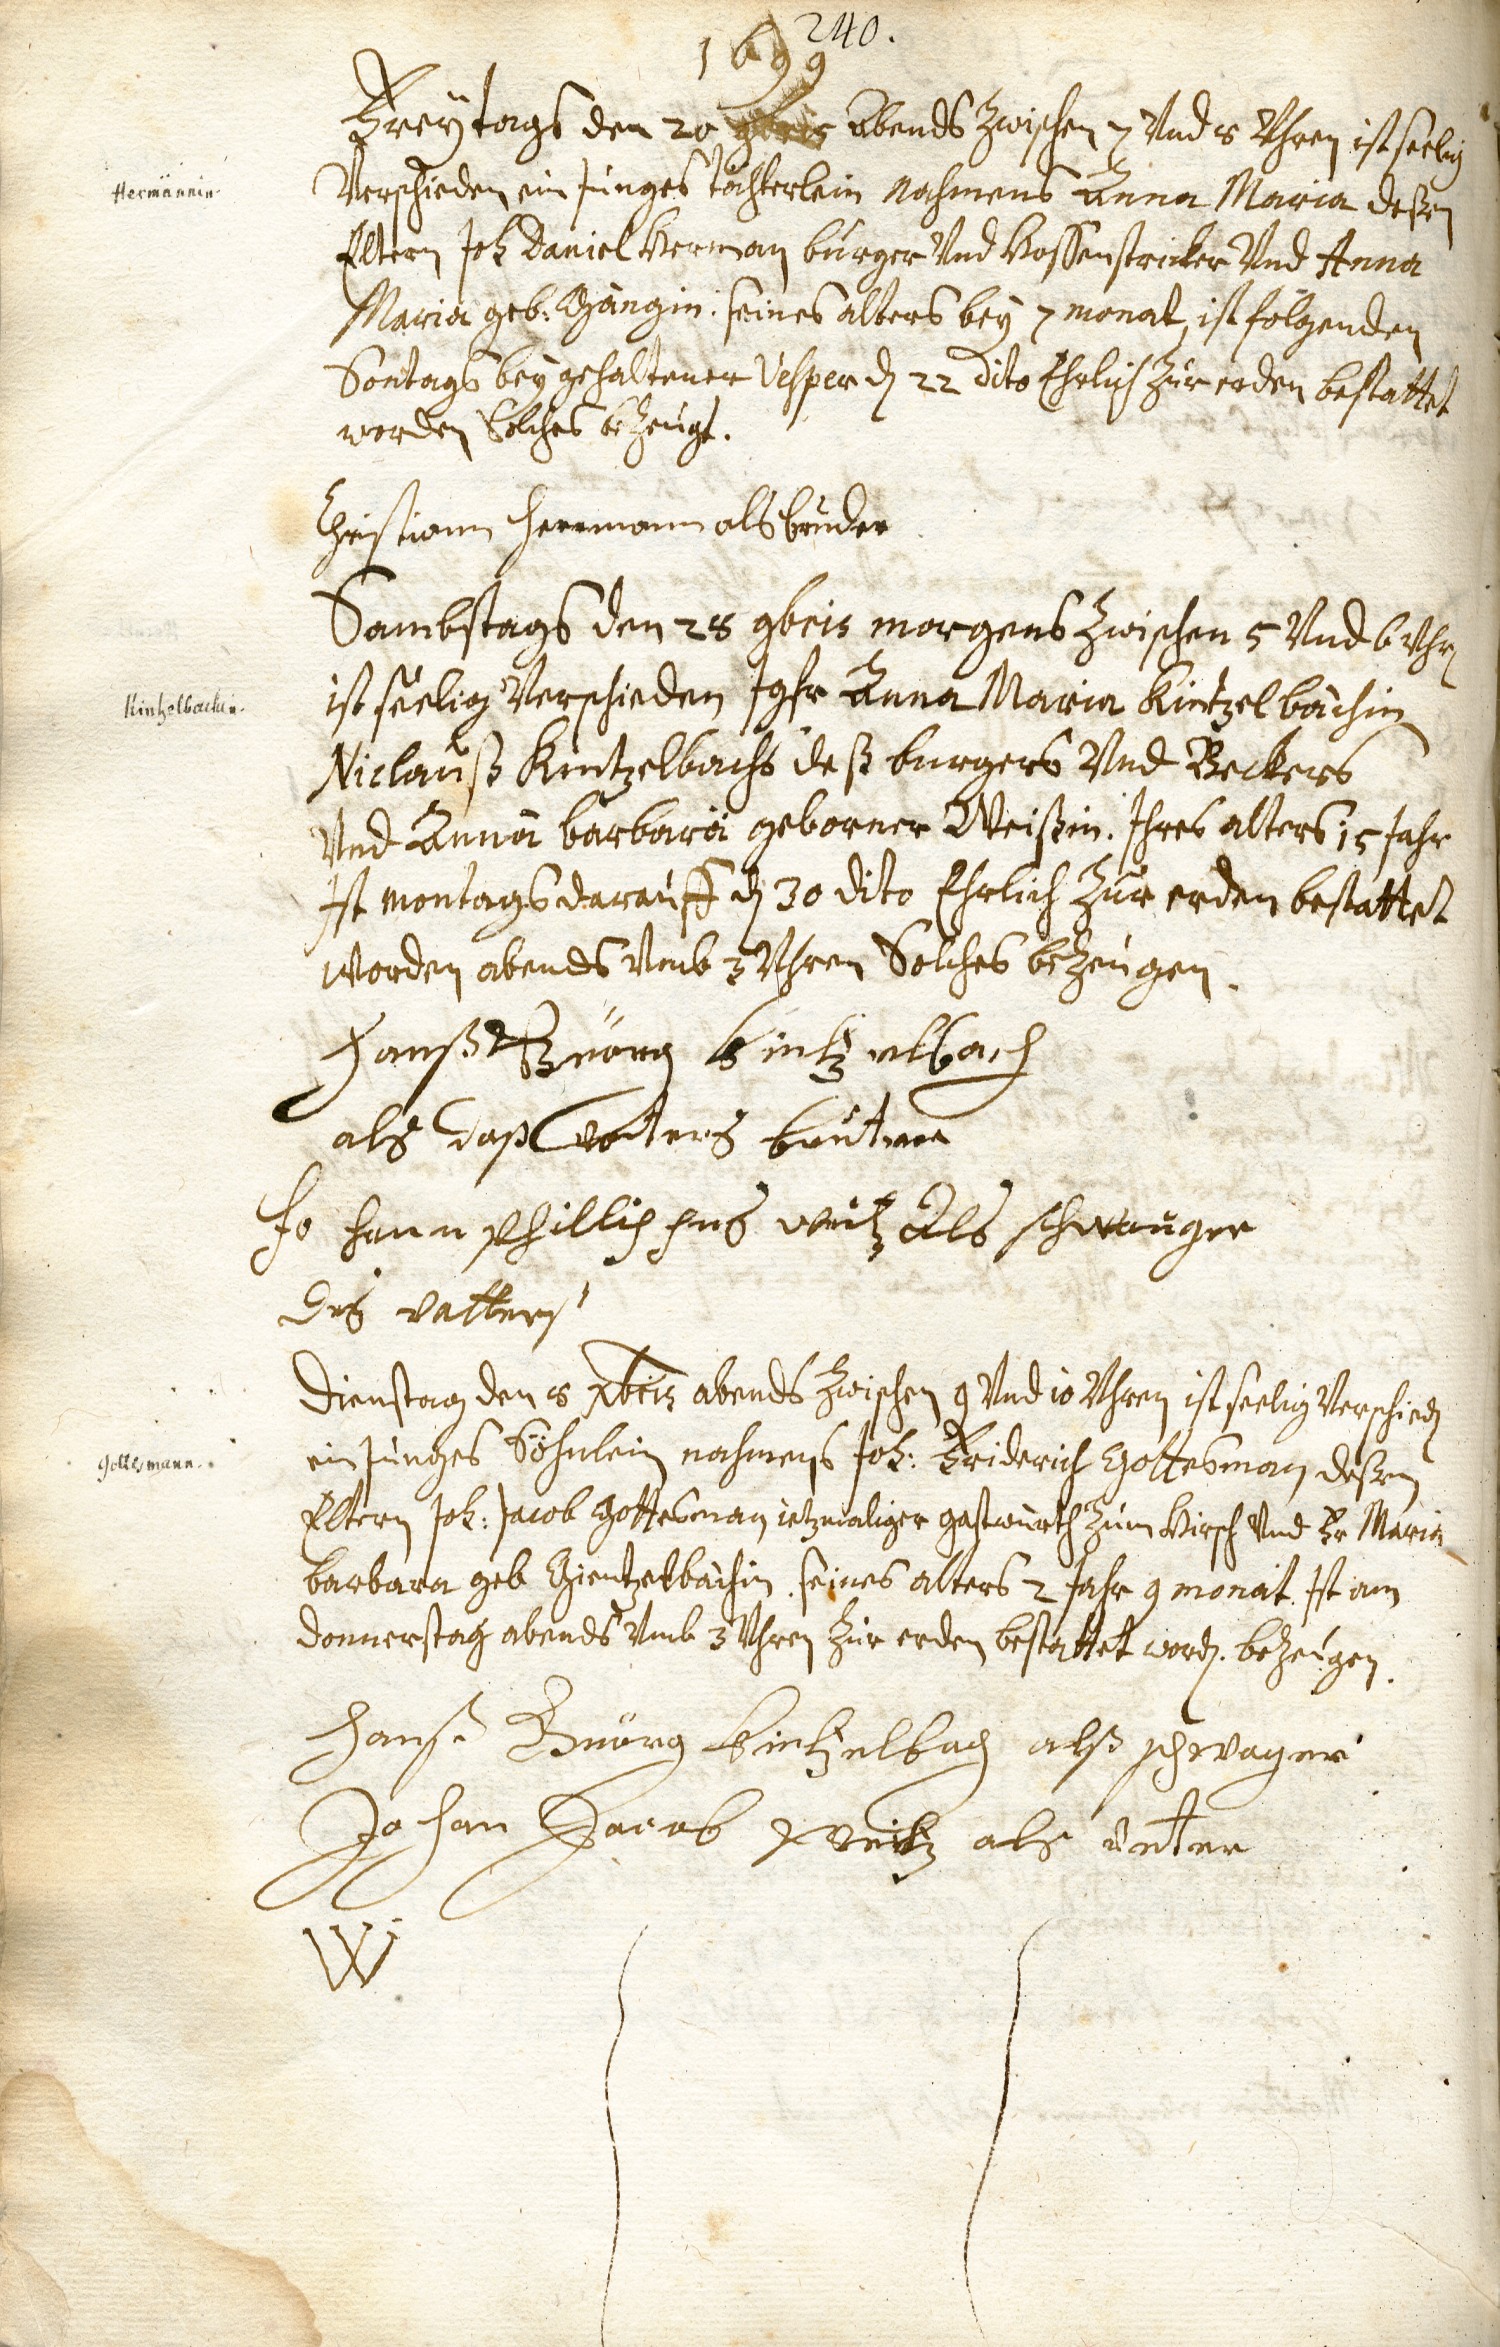 240.
1699
Freytags den 20 9bris Abends Zwischen 7 Vnd 8 Vhren ist seelig
Hermännin.
Verschieden ein Junges töchterlein Nahmens Anna Maria deßen
Eltern Joh Daniel Herman burger Vnd Hossenstricker Vnd Anna
Maria geb: seines alters bey 7 monat, ist folgenden
Sontags bey gehaltener Vesper d 22 dito Ehrlich Zur erden bestattet
worden Solches bezeugt.
Christian Herrmann als bruder
Sambstags den 28 9bris morgens Zwischen 5 Vnd 6 Vhr
Kintzelbachin.
ist seelig Verschieden Jgfr Anna Maria Kintzelbachin
Niclauß Kintzelbachs deß burgers Vnd Beckers
Vnd Anna barbara geborner Weißin. Ihres alters 15 Jahr
Ist montags darauff d 30 dito Ehrlich Zur erden bestattet
worden abends Vmb 3 Vhren Solches bezeugen.
Hanß Geörg Kintzelbach
als daß vatters bruter
Johann Phillippus Weitz Als schwauger
des vatters
Dienstag den 8 Xbris abends Zwischen 9 Vnd 10 Vhren ist seelig Verschied
Gottesmann.
ein Junges Söhnlein nahmens Joh: Friderich Gottesman deßen
Eltern Joh: Jacob Gottesman jetzmaliger gastwürth Zum Hirsch Vnd Fr Maria
barbara geb Kientzelbächin. seines alters 2 Jahr 9 monat. Ist am
donnerstag abends Vmb 3 Vhren Zur erden bestattet word. bezeugen.
Hanß Geörg Kintzelbach alß schwager
Johan Jacob Weitz als
W